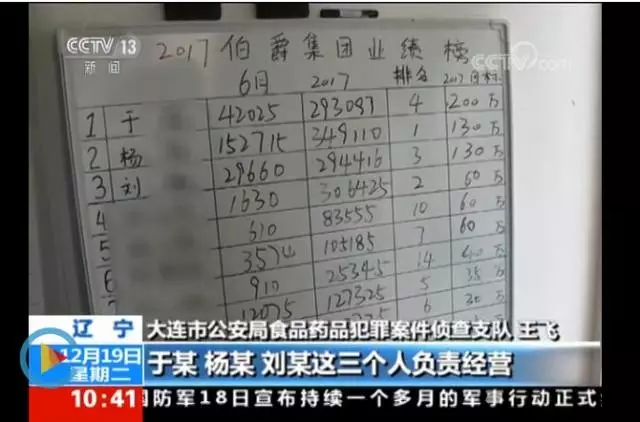 CCTV 13
新闻
央视网
CCTV.com
2017 伯爵集团业绩榜
6月 2017 排名 2017目标
1 于 42025 293087 4 200万
2 杨 152715 349110 1 130万
3 刘 29660 294416 3 130万
4 1630 306425 2 60万
5 610 83555 10 60万
6 105185 7 60万
910 25345 14 40万
12075 127325 5 35万
6 30万
辽宁 大连市公安局食品药品犯罪案件侦查支队 王飞
12月19日
星期二
于某 杨某 刘某这三个人负责经营
10:41
国防军18日宣布持续一个多月的军事行动正式